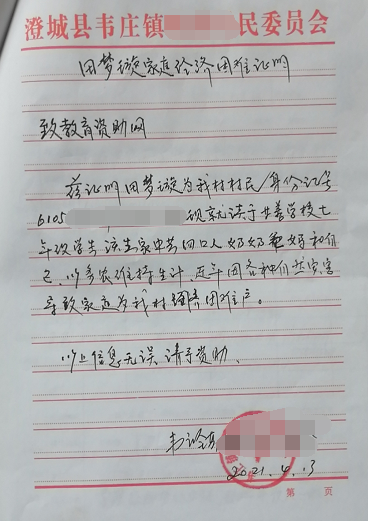 澄城县韦庄镇 民委员会
田梦璇家庭经济困难证明
致教育资助网
兹证明田梦璇为我村村民身份证号
6105 现就读于 学校七
年级学生,该生家中共四口人奶奶爸妈和自
己,以务农维持生计,近年因各种自然灾害
导致家庭为我村 困难户。
以上信息无误,请予资助、
韦庄镇
2021.4.13
第 页